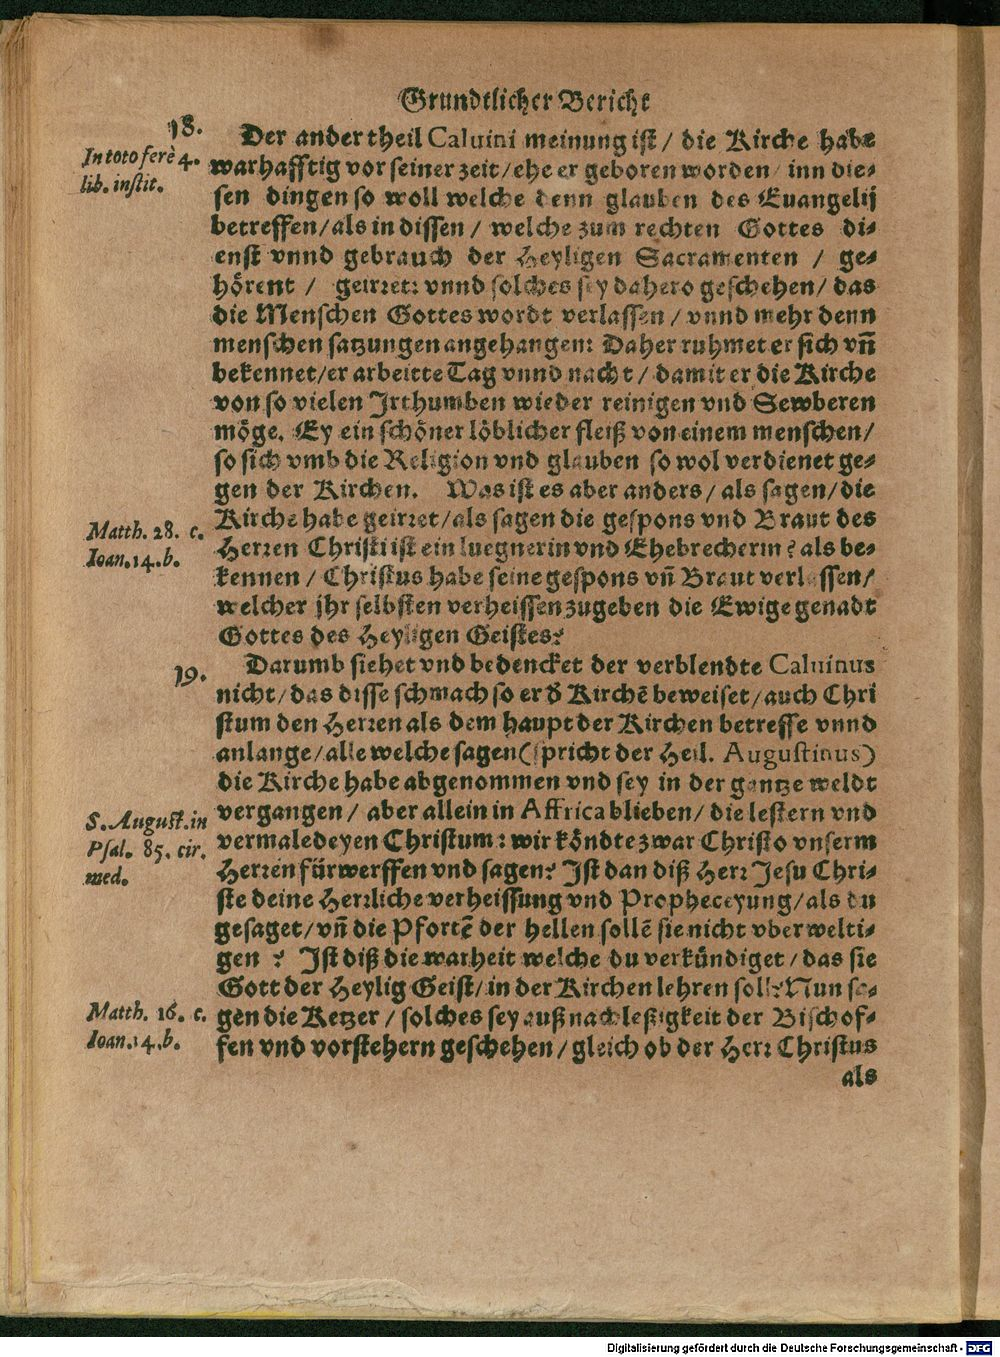 Grundtlicher Bericht
18.
In toto ferè 4.
lib. instit.
Der ander theil Caluini meinung ist / die Kirche habe
warhafftig vor seiner zeit / ehe er geboren worden / inn die-
sen dingen so woll welche denn glauben des Euangelij
betreffen / als in dissen / welche zum rechten Gottes di-
enst vnnd gebrauch der Heyligen Sacramenten / ge-
hörent / geirret: vnnd solches sey dahero geschehen / das
die Menschen Gottes wordt verlassen / vnnd mehr denn
menschen satzungen angehangen: Daher ruhmet er sich vñ
bekennet / er arbeitte Tag vnnd nacht / damit er die Kirche
von so vielen Irthumben wieder reinigen vnd Sewberen
möge. Ey ein schöner löblicher fleiß von einem menschen /
so sich vmb die Religion vnd glauben so wol verdienet ge-
gen der Kirchen. Was ist es aber anders / als sagen / die
Kirche habe geirret / als sagen die gespons vnd Braut des
Herren Christi ist ein luegnerin vnd Ehebrecherin? als be-
kennen / Christus habe seine gespons vñ Braut verlassen /
welcher jhr selbsten verheissen zugeben die Ewige genadt
Gottes des Heyligen Geistes?
Matth. 28. c.
Ioan. 14. b.
19.
Darumb siehet vnd bedencket der verblendte Caluinus
nicht / das disse schmach so er d̕ Kirchẽ beweiset / auch Chri
stum den Herren als dem haupt der Kirchen betreffe vnnd
anlange / alle welche sagen (spricht der Heil. Augustinus)
die Kirche habe abgenommen vnd sey in der gantze weldt
vergangen / aber allein in Affrica blieben / die lestern vnd
vermaledeyen Christum: wir köndte zwar Christo vnserm
Herren fürwerffen vnd sagen? Ist dan diß Herr Jesu Chri-
ste deine Herrliche verheissung vnd Propheceyung / als du
gesaget / vñ die Pfortẽ der hellen sollẽ sie nicht vberwelti-
gen ? Ist diß die warheit welche du verkündiget / das sie
Gott der Heylig Geist / in der Kirchen lehren soll? Nun sa-
gen die Ketzer / solches sey auß nachleßigkeit der Bischof-
fen vnd vorstehern geschehen / gleich ob der Herr Christus
als
S. August. in
Psal. 85. cir.
med.
Matth. 16. c.
Ioan. 14. b.
Digitalisierung gefördert durch die Deutsche Forschungsgemeinschaft - DFG